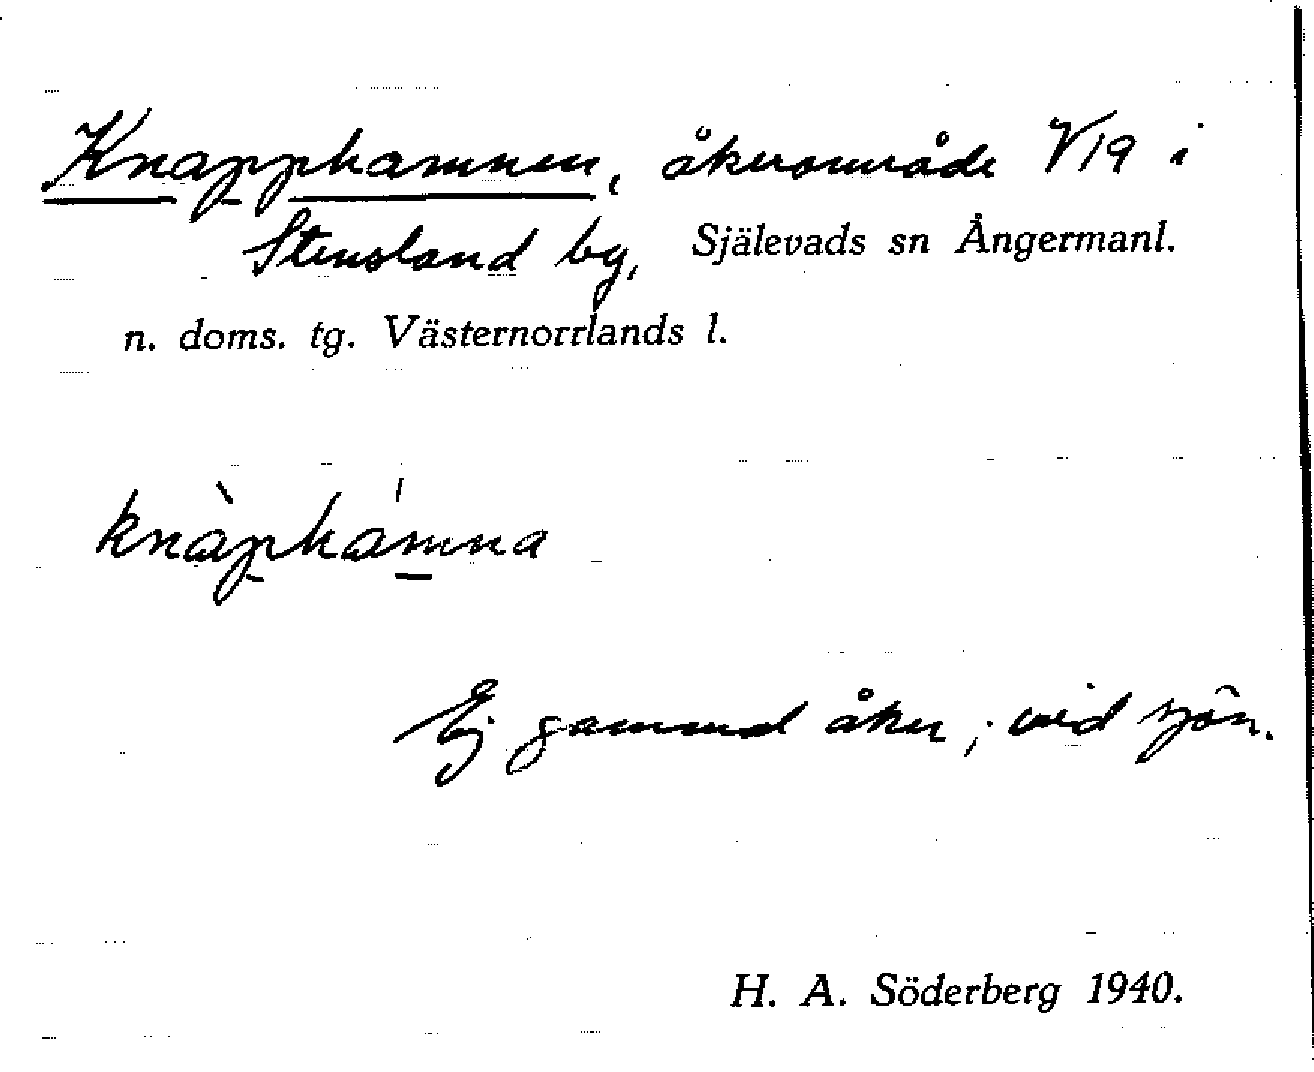 Knapphamnen, åkerområde V19 i
Stensland by, Själevads sn Ångermanl.
n. doms. tg. Västernorrlands l.
knàphámna
Ej gammal åker, vid sjön.
H. A. Söderberg 1940.